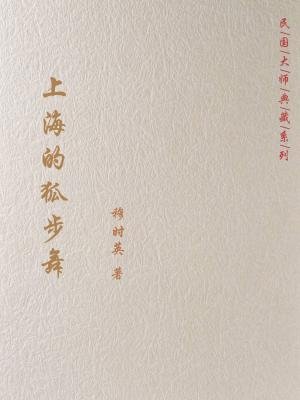 民国大师典藏系列
上海的狐步舞
穆时英 著